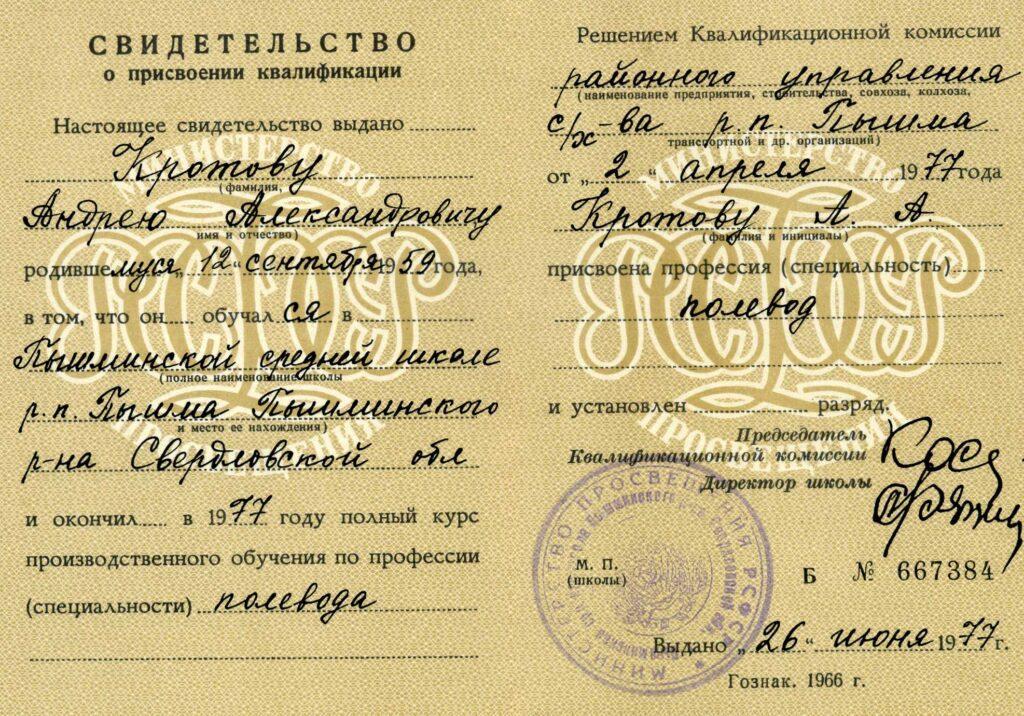 СВИДЕТЕЛЬСТВО
о присвоении квалификации
Настоящее свидетельство выдано
Кротову
(фамилия,
Андрею Александровичу
имя и отчество)
родившемуся „12“ сентября 1959 года,
в том, что он обучался в
Пышминской средней школе
(полное наименование школы
р.п. Пышма Пышминского
и место ее нахождения)
р-на Свердловской обл
и окончил в 1977 году полный курс
производственного обучения по профессии
(специальности) полевода
Решением Квалификационной комиссии
районного управления
(наименование предприятия, строительства, совхоза, колхоза,
с/х-ва р.п. Пышма
транспортной и др. организаций)
от „2“ апреля 1977 года
Кротову А. А
(фамилия и инициалы)
присвоена профессия (специальность)
полевод
и установлен разряд.
Председатель
Квалификационной комиссии
Директор школы
М. П.
(школы)
Б № 667384
Выдано „26“ июня 1977 г.
Гознак. 1966 г.
МИНИСТЕРСТВО
РСФСР
ПРОСВЕЩЕНИЯ
МИНИСТЕРСТВО
РСФСР
ПРОСВЕЩЕНИЯ
МИНИСТЕРСТВО ПРОСВЕЩЕНИЯ РСФСР